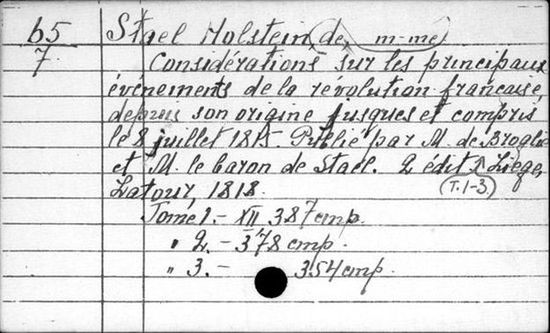 65 Stael Holstein, de, m-me
7 Considérations sur les principaux
événements de la révolution française
depuis son origine jusques et compris
le 8 juillet 1815. Publié par M. de Broglie
et M. le baron de Stael. 2 édit. Liège,
Latour 1818. (T. 1-3.)
Tome 1. - XII 387 cmp.
" 2. - 378 cmp.
" 3. - 354 cmp.